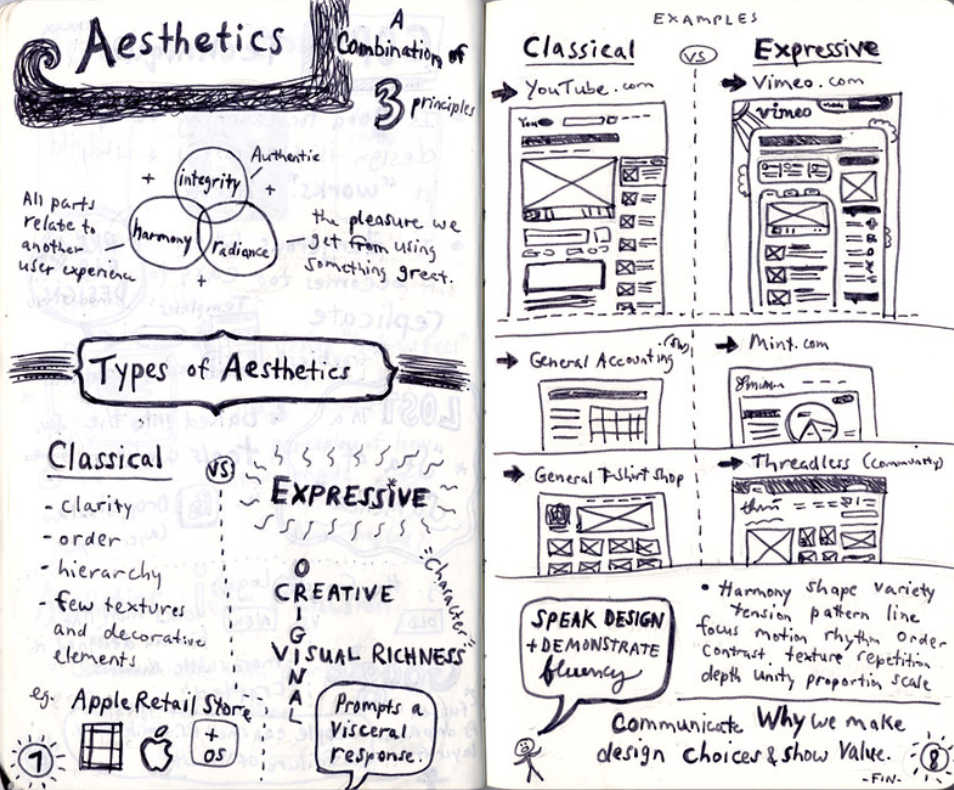 Aesthetics
A
Combination of
3 principles
integrity
Authentic
+
+
harmony
radiance
+
All parts
relate to
another
user experience
the pleasure we
get from using
something great.
Types of Aesthetics
Classical
VS
EXPRESSIVE
- clarity
- order
- hierarchy
- few textures
and decorative
elements
eg. Apple Retail Store
+
OS
ORIGINAL
CREATIVE
VISUAL RICHNESS
"Character"
Prompts a
Visceral
response.
7
EXAMPLES
Classical
VS
Expressive
YouTube.com
Vimeo.com
You
vimeo
General Accounting
Mint.com
General T-Shirt Shop
Threadless (community)
SPEAK DESIGN
+ DEMONSTRATE
fluency
• Harmony shape variety
tension pattern line
focus motion rhythm order
Contrast texture repetition
depth unity proportion scale
Communicate Why we make
design choices & show value.
-FIN-
8